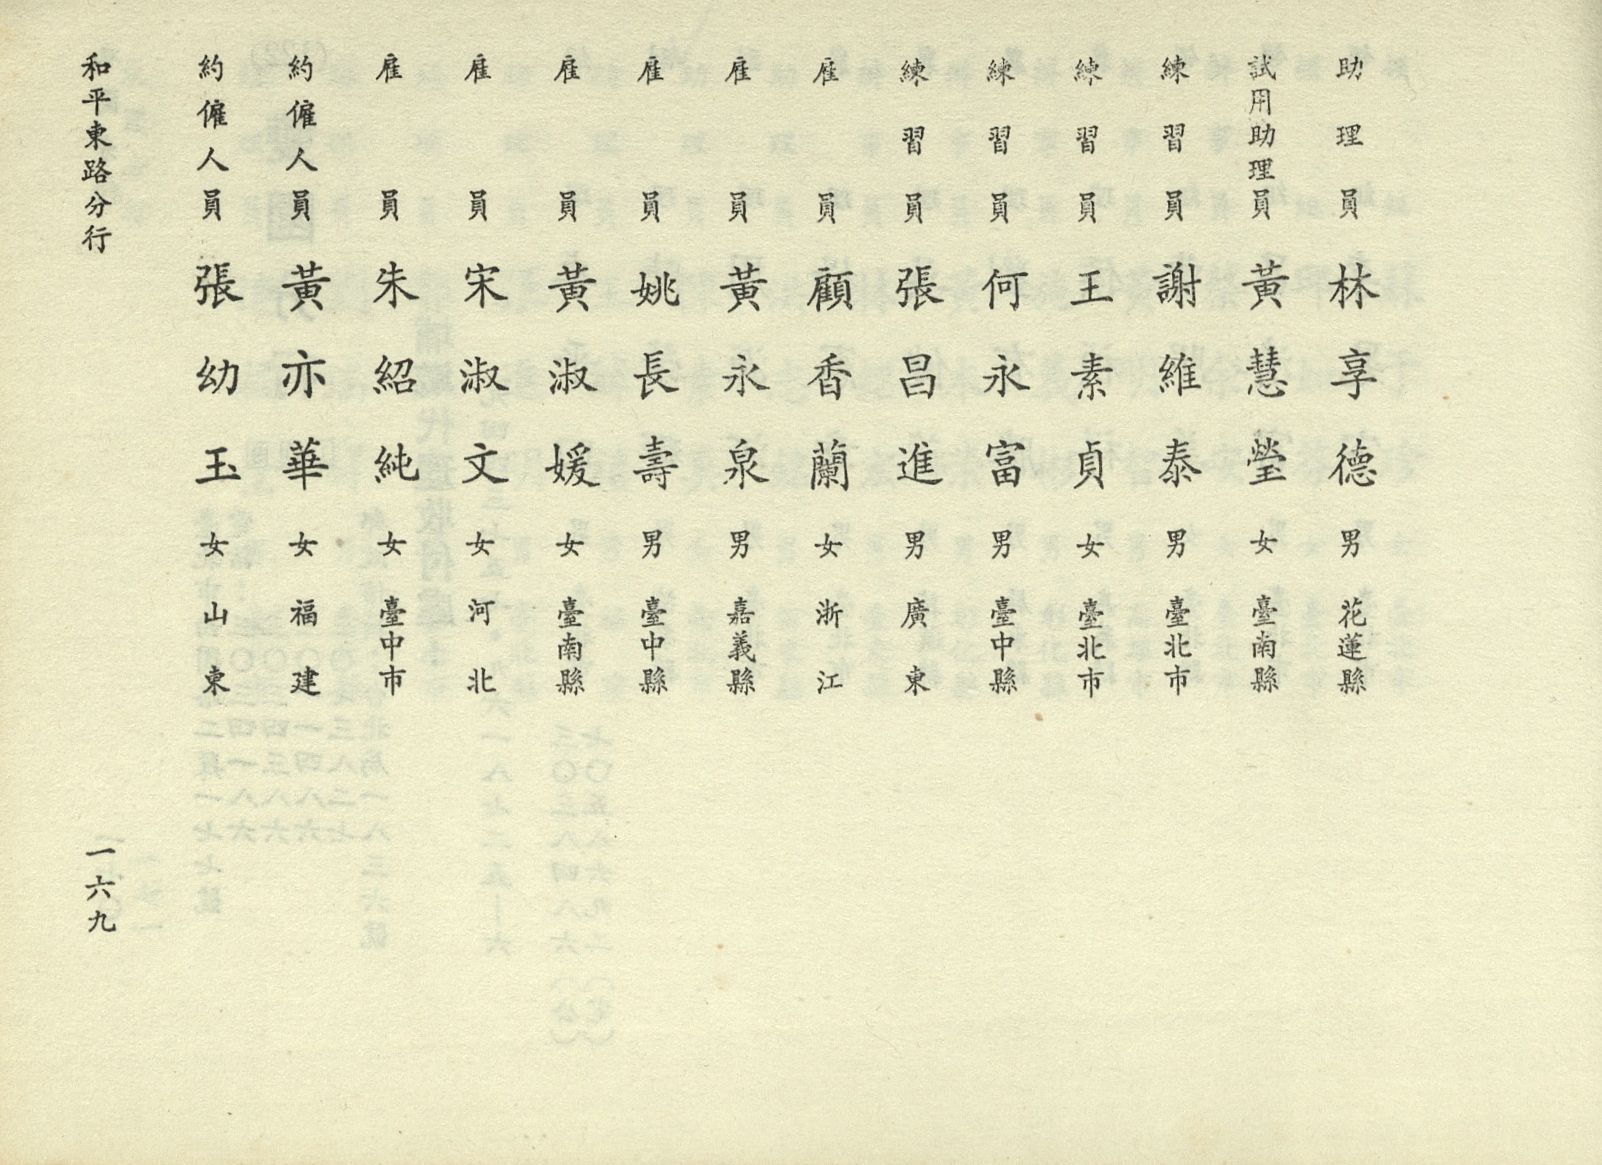 助理員林享德男花蓮縣
試用助理員黃慧瑩女臺南縣
練習員謝維泰男臺北市
練習員王素貞女臺北市
練習員何永富男臺中縣
練習員張昌進男廣東
雇員顧香蘭女浙江
雇員黃永泉男嘉義縣
雇員姚長壽男臺中縣
雇員黃淑媛女臺南縣
雇員宋淑文女河北
雇員朱紹純女臺中市
約僱人員黃亦華女福建
約僱人員張幼玉女山東
和平東路分行
一六九